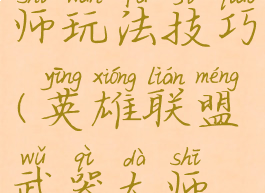 师玩法技巧
yīng xióng lián méng
(英雄联盟
wǔ qì dà shī
武器大师